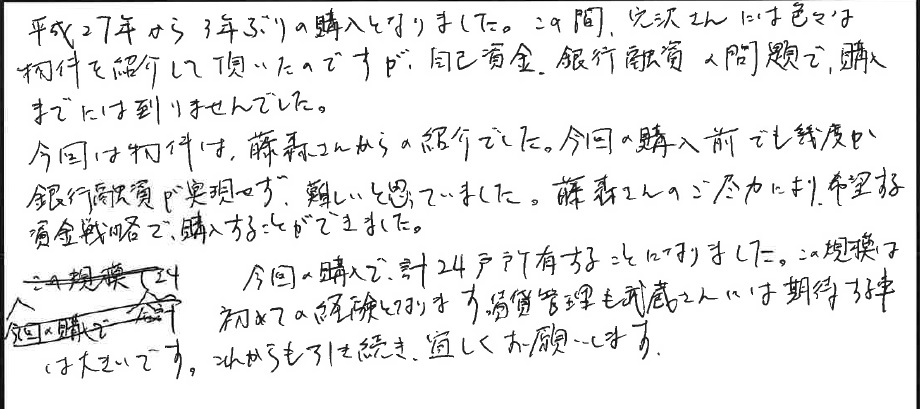 平成27年から3年ぶりの購入となりました。この間、穴沢さんには色々な
物件を紹介して頂いたのですが、自己資金、銀行融資の問題で、購入
までには到りませんでした。
今回は物件は、藤森さんからの紹介でした。今回の購入前でも幾度か
銀行融資が実現せず、難しいと思っていました。藤森さんのご尽力により、希望する
資金戦略で、購入することができました。
この規模 で24 今回の購入で、計24戸所有することになりました。この規模は
今回の購入で 合計 初めての経験となります。賃貸管理も武蔵さんには期待する事
は大きいです。これからも引き続き、宜しくお願いします。